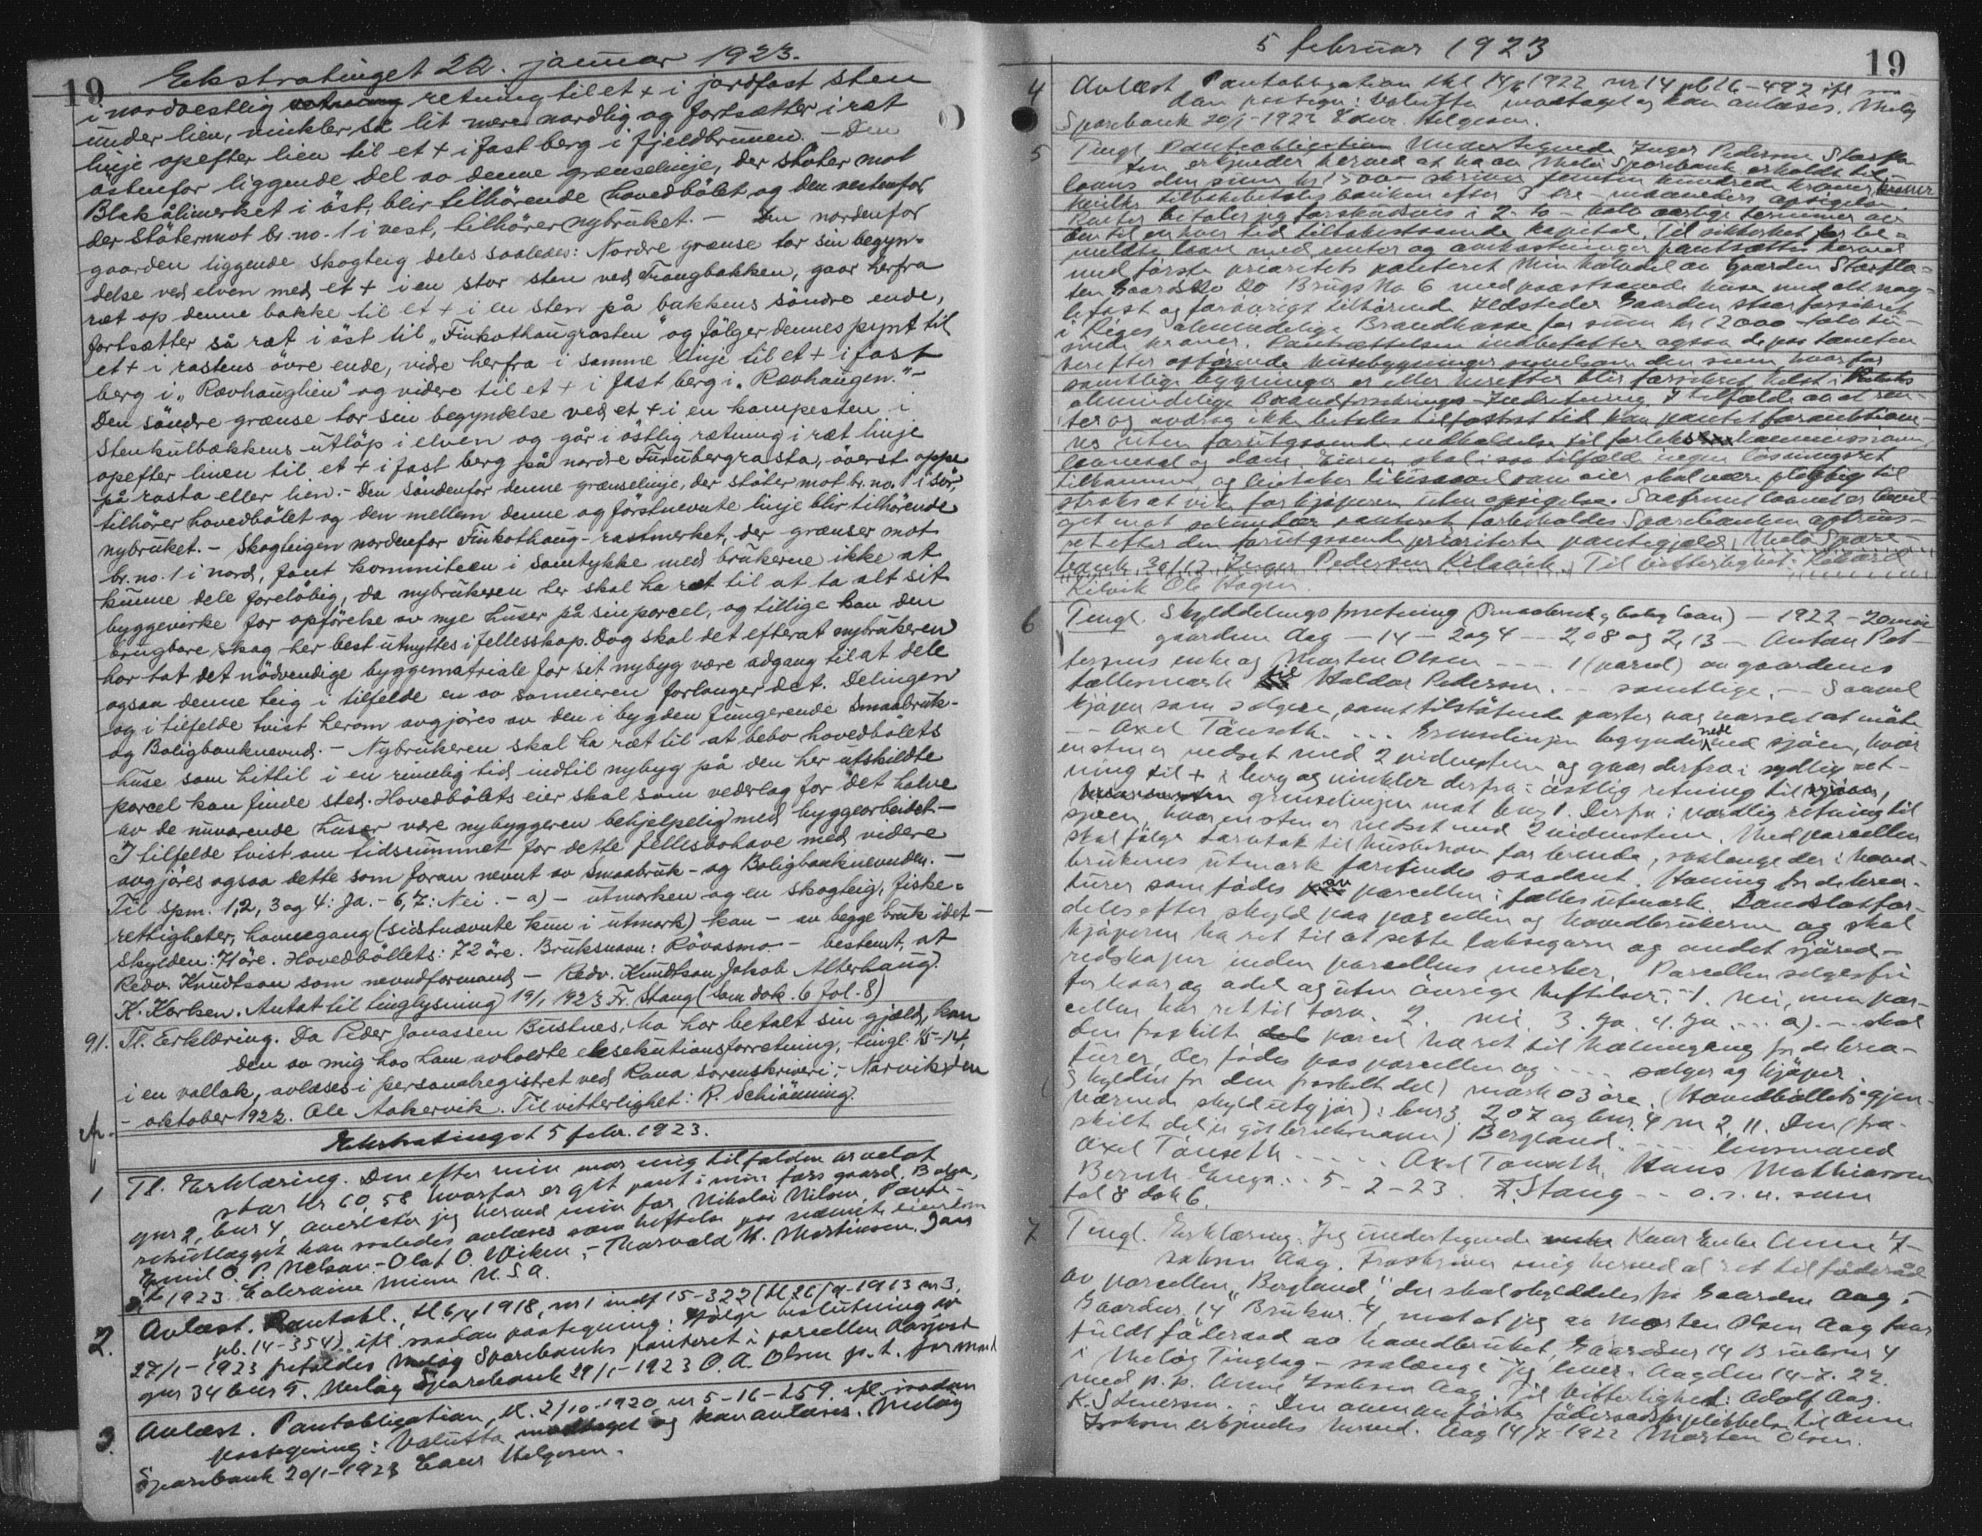 19
Ekstratinget 22. januar 1923.
i nordvestlig retning til et + i jordfast sten
under lien, vinkler så lit mere nordlig og fortsætter i ret
linje opefter lien til et + i fast berg i fjeldbrunen. - Den
østenfor liggende del av denne grænselinje, der støter mot
Blekålimerket i øst, blir tilhörende hovedbölet og den vestenfor
der støter mot br. no. 1 i vest, tilhörer nybruket. - Den nordenfor
gaarden liggende skogteig deles saaledes: Nordre grænse tar sin begyn-
delse ved elven med et + i en stor sten ved Trangbakken, gaar herfra
ret op denne bakke til et + i en sten på bakkens söndre ende,
fortsætter så ret i öst til „Finkothaugrasten" og fölger dennes pynt til
et + i rastens övre ende, vidre herfra i samme linje til et + i fast
berg i „Rævhauglien" og videre til et + i fast berg i „Rævhaugen." -
Den söndre grænse tar sin begyndelse ved et + i en kampesten i
Stenkulbækkens utlöp i elven og går i östlig retning i ret linje
opefter linen til et + i fast berg på nordre Furubergrasta, överst oppe
på rasta eller lien. - Den söndenfor denne grænselinje, der stöter mot br. no. 1 i sör,
tilhörer hovedbölet og den mellem denne og förstnevnte linje blir tilhörende
nybruket. - Skogteigen nordenfor Finkothaug-rastmerket, der grænser mot
br. no. 1 i nord, fant kommiteen i samtykke med brukerne ikke at
kunne dele foreløbig, da nybrukeren her skal ha ret til at ta alt sit
byggevirke for opförelse av nye huser på sin parcel, og tillige kan den
brugbare skog her best utnyttes i fellesskap. Dog skal det efterat nybrukeren
har tat det nödvendige byggematriale for set nybyg være adgang til at dele
ogsaa denne teig i tilfelde en av sameieren forlanger det. Delingen
og i tilfelde tvist herom avgjöres av den i bygden fungerende Smaabruk-
og Boligbanknevnd. - Nybrukeren skal ha ret til at bebo hovedbölets
huse som hittil i en rimelig tid, indtil nybyg på den her utskildte
parcel kan finde sted. Hovedbölets eier skal som vederlag for det halve
av de nuværende huser være nybyggeren behjelpelig med byggearbeidet -
I tilfelde tvist om tidsrummet for dette fellesbohave med videre
avgjöres ogsaa dette som foran nevnt av Smaabruk- og Boligbanknevnden. -
Til spm. 1, 2, 3 og 4: Ja. - 6, 7: Nei. - a) - utmarken og en skogteig, fiske-
rettigheter, havnegang (sidstnævnte kun i utmark) kan - av begge bruk idet -
Skylden: 71 öre. Hovedböllets: 72 öre. Bruksnavn: Rövasmo - bestemt, at
Redv. Knudtson som nevndformand - Redv. Knudtson Jakob Alterhaug.
K. Karlsen. Antat til tinglysning 19/1 1923 Fr. Stang (Som dok. 6 fol. 8)
91. Tl. Erklæring. Da Peder Jonassen Bustnes, Mo har betalt sin gjæld, kan
den av mig hos ham avholdte eksekutionsforretning, tingl. 15-14,
i en vallak, avlæses i personalregistret ved Rana sorenskriveri, - Narvik, den
- oktober 1922. Ole Aakervik. Til vitterlighet: R. Schiönning.
Ekstratinget 5 febr. 1923.
1 Tl. Erklæring. Den efter min mor mig tilfalden arvelot
stor kr 60,58 hvorfor er git pant i min fars gaard
gnr 2, bnr 4, overlater jeg herved min far Nikolai Nilsen. Pante-
retsutlægget kan saaledes avlæses som heftelse paa nævnte eiendom
Emil O. P Nelson - Olaf O. Viken, - Tharvald M. Martinsen. Jan
1923 Coleraine Minn U.S.A.
2. Avlæst. Pantobl., tl 6/4 1918, nr 1 indf 15-322 (tl 26/9-1913 nr 3,
pb. 14-354) ifl. saadan paategning: Ifølge beslutning av
27/1-1923 frafaldes Meløy Sparebanks panteret i parcellen
gnr 34 bnr 5. Meløy Sparebank 29/1-1923 O. A. Olsen p.t. formand
3. Avlæst. Pantobligation, tl. 2/10-1920, nr 5-16-159. ifl. saadan
paategning: Valutta modtaget og kan avlæses. Meløy
Sparebank 20/1-1923 Edur Helgesen.
5 februar 1923
19
4 Avlæst Pantobligation tkl 14/6 1922 nr 14 pb 16-492 ifl saa-
dan paategn: Valutta modtaget og kan avlæses. Meløy
Sparebank 20/1-1923 Edur. Helgesen.
5 Tingl. Pantobligation Undertegnede Inger Pedersen Storfla-
ten erkjender herved at ha av Meløy Sparebank erholdt til
laans den sum kr 1500 - skriver femten hundrede kroner
hvilke tilbakebetales banken efter 3 - tre - maaneders opsigelse.
Renter betales og forskudsvis i 2 - to - halv aarlige terminer av
den til enhver tid tilbakestaaende kapital. Til sikkerhet for be-
meldte laan med renter og omkostninger pantsættes herved
med første prioritets panteret Min halvdel av Gaarden Storfla-
ten Gaards No Brugs No 6 med paastaaende huse med alt nag-
lefast og forøvrigt tilhørende Ildsteder Gaarden staar forsikret
i Riges almindelige Brandkasse for sum kr 12000 - tolv tu-
sinde kroner. Pantsættelsen indbefatter ogsaa de paa tomten
herefter opførende husebygninger samt den sum, hvorfor
samtlige bygninger er eller herefter blir forsikret helst i Rikets
almindelige Brandforsikrings-Indretning I tilfælde av at ren-
ter og avdrag ikke betales til fastsat tid kan pantet forauktione-
res uten forutgaaende indkaldelse til forliks kommissionen,
lovmaal og dom. Eieren skal i saa tilfælde ingen løsningsret
tilkomme og beboer likesaavel som eier skal være pligtig til
straks at vike for kjøperen uten opsigelse. Saafremt laanet er bevil-
get mot sekundær panteret forbeholdes Sparebanken oprins-
ret efter den forutgaaende prioriterte pantegjæld, Meløy Spare-
bank 30/12 Inger Pedersen Kilavik. Til vitterlighet: Edvard
Kilvik Ole Hagen
6 Tingl. Skylddelingsforretning (Smaabruk og bolig laan) - 1922 - 20 mai
gaarden Aag - 14 - 2 og 4 - 2,08 og 2,13 - Anton Pet-
tersens enke og Morten Olsen - - - 1 (parcel) av gaardens
fællesmark til Haldor Pedersen. - samtlige. - Saavel
kjøper som sælgere, samt tilstøtende parter var varslet at møte
- - Axel Tånseth. - - - Grenselinjen begynder nede ved sjøen, hvor
en sten er nedsat med 2 vidnesten og gaar derfra i sydlig ret-
ning til + i berg og vinkler derfra i østlig retning til
grenselinjen mot bnr 1. Derfra i nordlig retning til
sjøen, hvor en sten er nedsat med 2 vidnestene. Med parcellen
skal følge tørvtak til husbehov for brende, saalænge der i hoved-
brukenes utmark forefindes saadant. Havning for de krea-
turer som fødes paa parcellen i fælles utmark. Landslotfor-
deles efter skyld paa parcellen og hovedbrukerne og skal
kjøperen ha ret til at sette laksegarn og andet sjøred-
redskaper inden parcellens merker. Parcellen sælges fri
for kaar og odel og uten øvrige heftelser. - 1. Nei, men par-
cellen har ret til torv. 2. nei. 3. Ja. 4. Ja - - - a). - skal
den fraskilte parcel ha ret til havnegang for de krea-
turer der fødes paa parcellen og - - - - sælger og kjøper.
Skylden for den fraskilt del) mark 03 øre. (Hovedbøllets gjen-
værende skyld utgjør): bnr 3 2 07 og bnr. 4 m 2, 11. Den (fra-
skilte del er git bruksnavn) Bergland. - - - - lensmand
Axel Tånseth - - - - - Axel Tånseth. Hans Mathiassen
Bernh Enga. - - 5-2-23 F. Stang - - o.r.u. som
fol 8 dok 6.
7 Tingl. Erklæring. Jeg undertegnede Kaar Enke Anne I-
saksen Aag. Fraskriver mig herved al ret til føderåd
av parcellen „Bergland", der skal skylddeles fra Gaarden Aag,
Gaardnr. 14 Bruknr. 4, mot at jeg av Morten Olsen Aag faar
fuldt føderaad av hovedbruket, Gaardsnr 14 Bruksnr 4
i Meløy Tinglag - saalænge jeg lever. Aag den 14-7. 22.
med p. p. Anne Isaksen Aag. Til Vitterlighet: Adolf Aag.
K. Steversen. : Den ovenanførte føderaadsforpligtelse til Anne
Isaksen erkjendes herved. Aag 14/7-1922 Morten Olsen.